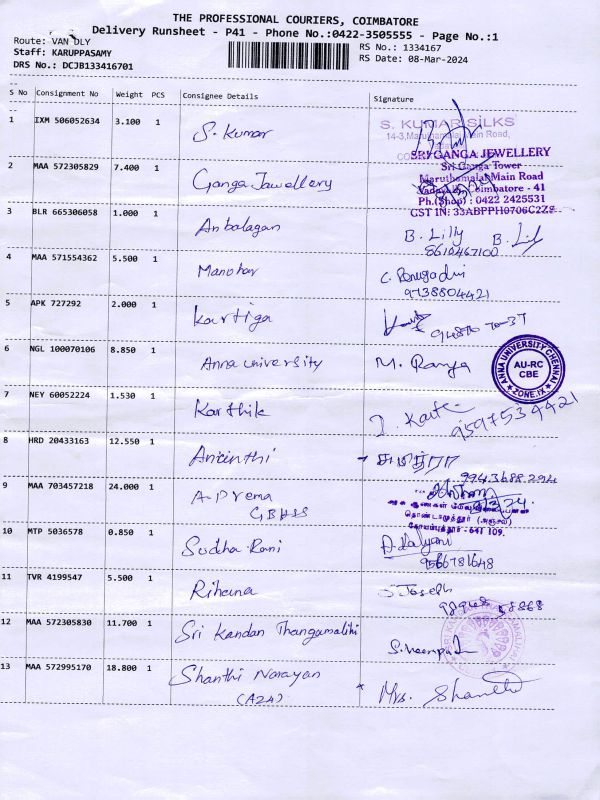 THE PROFESSIONAL COURIERS, COIMBATORE
Delivery Runsheet - P41 - Phone No.:0422-3505555 - Page No.:1
Route: VAN DLY
Staff: KARUPPASAMY
DRS No.: DCJB133416701
RS No.: 1334167
RS Date: 08-Mar-2024
S No Consignment No Weight PCS Consignee Details Signature
1 IXM 506052634 3.100 1 S. Kumar
S. KUMAR SILKS
14-3, Main Road,
2 MAA 572305829 7.400 1 Ganga Jawellery
SRI GANGA JEWELLERY
Sri Ganga Tower
Maruthamalai Main Road
Coimbatore - 41
Ph.(Shop) : 0422 2425531
GST IN: 33ABPPH0706C2Z8
3 BLR 665306058 1.000 1 Anbalagan B. Lilly B. Lilly
8610467100
4 MAA 571554362 5.500 1 Manohar C.
9738804421
5 APK 727292 2.000 1 Kartiga
6 NGL 100070106 8.850 1 Anna university M. Ramya
ANNA UNIVERSITY CHENNAI
AU-RC
CBE
ZONE.IX
7 NEY 60052224 1.530 1 Karthik
9597534421
8 HRD 20433163 12.550 1 சுமித்ரா
9943688294
9 MAA 703457218 24.000 1 A-Prema
GBHSS
அரசு ஆண்கள்
தொண்டாமுத்தூர் (அஞ்சல்)
கோயம்புத்தூர் - 641 109.
10 MTP 5036578 0.850 1 Sudha Rani A. Kalyani
9566781648
11 TVR 4199547 5.500 1 Rihana S Joseph
12 MAA 572305830 11.700 1 Sri Kandan Thangamalihi
13 MAA 572995170 18.800 1 Shanthi Narayan Mrs. Shanthi
(A24)